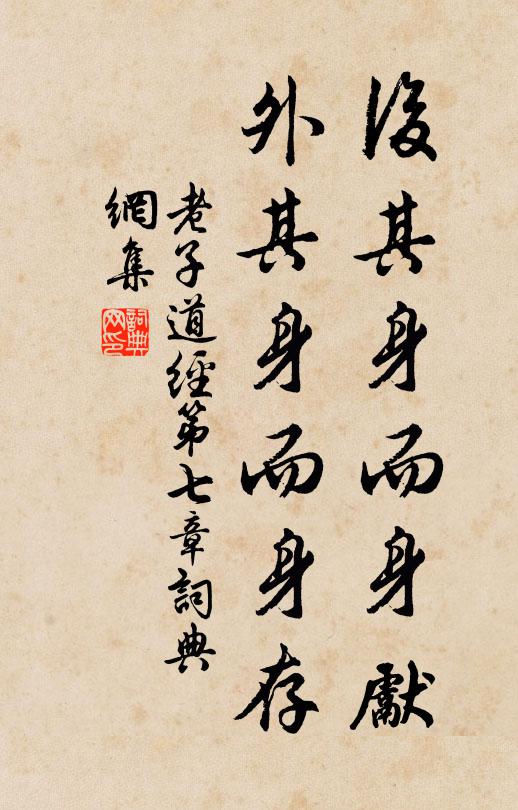 後其身而身獻
外其身而身存
老子道經第七章詞典
網集
詞典
网印